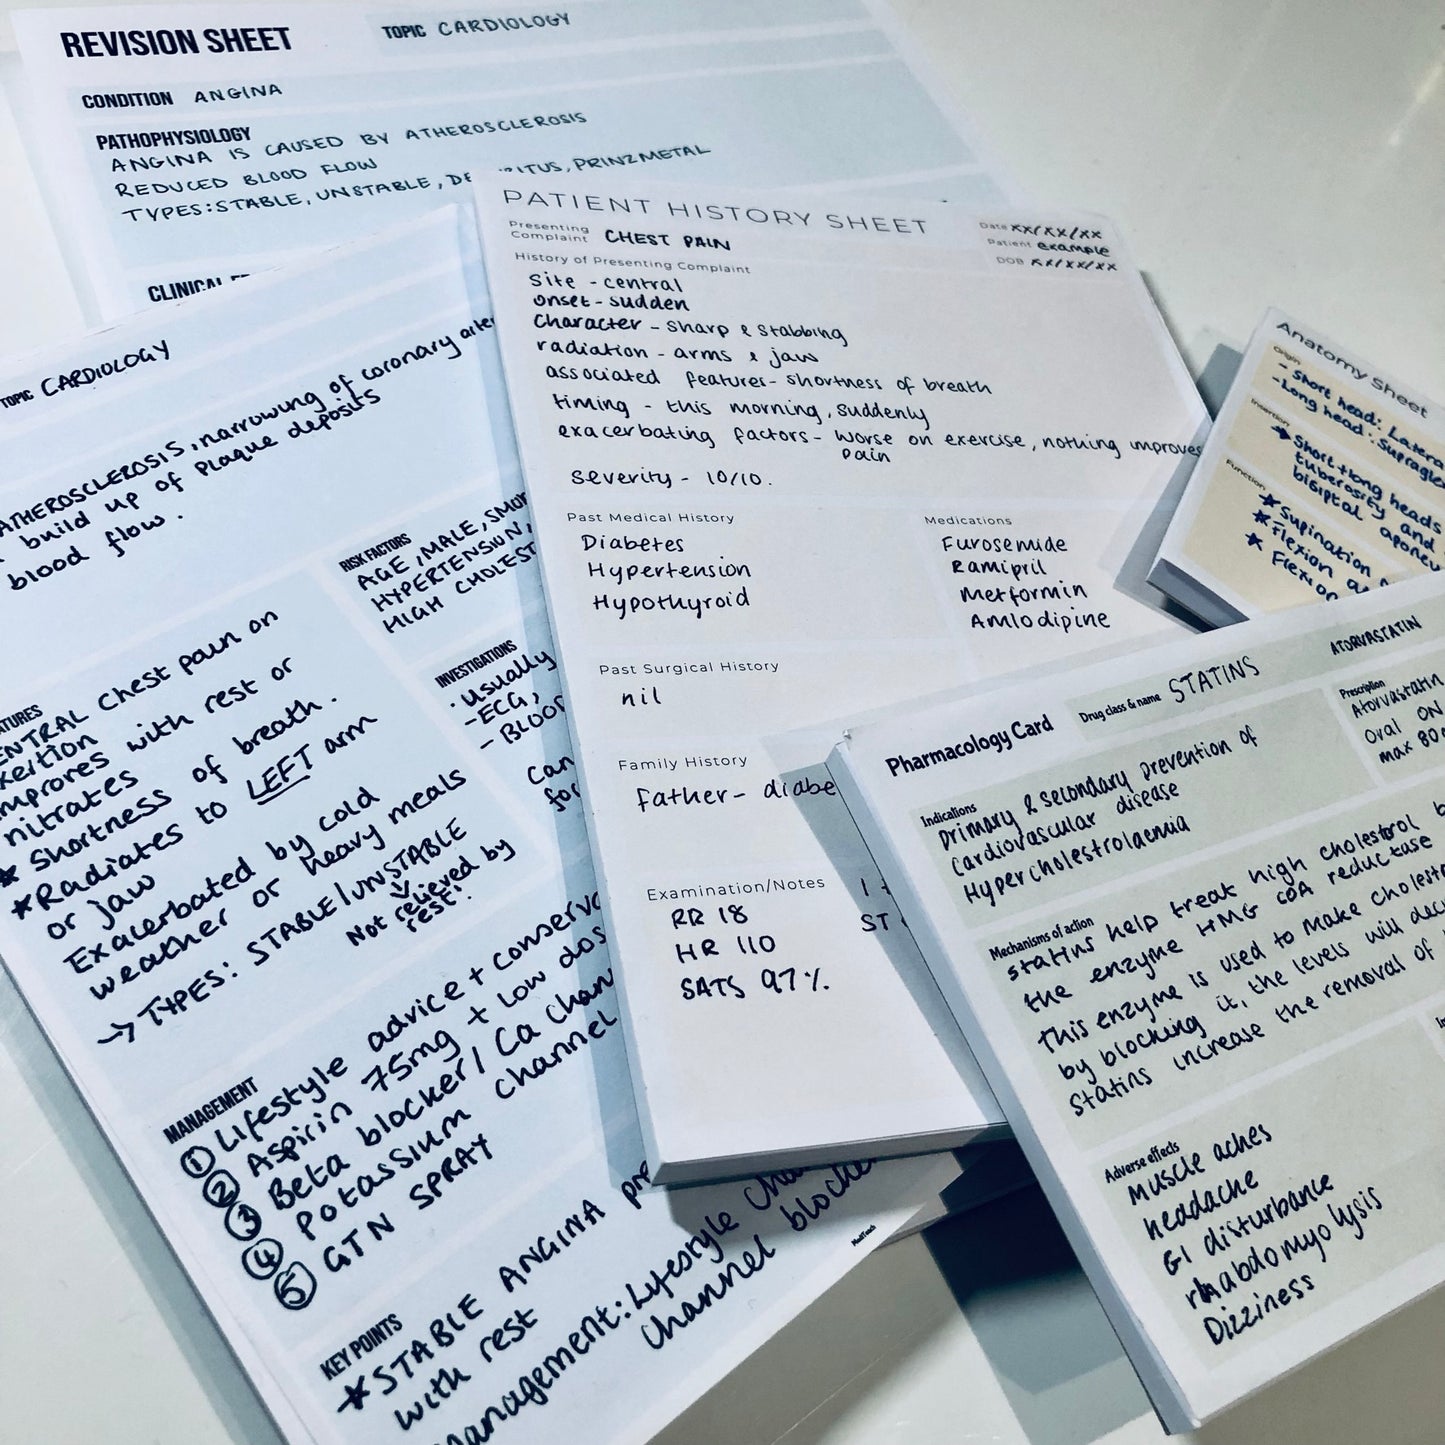 REVISION SHEET
TOPIC CARDIOLOGY
CONDITION ANGINA
PATHOPHYSIOLOGY
ANGINA IS CAUSED BY ATHEROSCLEROSIS
REDUCED BLOOD FLOW
TYPES: STABLE, UNSTABLE, PRINZMETAL
CLINICAL
TOPIC CARDIOLOGY
ATHEROSCLEROSIS, narrowing of coronary
build up of plaque deposits
blood flow.
RISK FACTORS
AGE, MALE,
HYPERTENSION,
HIGH
chest pain on
with rest or
nitrates
* Shortness of breath.
* Radiates to LEFT arm
or jaw
Exacerbated by cold
weather or heavy meals
→ TYPES: STABLE/UNSTABLE
Not relieved by
rest!
INVESTIGATIONS
· usually
- ECG,
- BLOOD
can
for
MANAGEMENT
① Lifestyle advice +
② Aspirin 75mg + low
③ Beta blocker/ Ca
④ Potassium channel
⑤ GTN SPRAY
KEY POINTS
* STABLE ANGINA
with rest
Management: Lifestyle
channel
MedTimes
PATIENT HISTORY SHEET
Date xx/xx/xx
Patient example
DOB xx/xx/xx
Presenting
Complaint CHEST PAIN
History of Presenting Complaint
Site - central
onset - sudden
Character - sharp & stabbing
radiation - arms & jaw
associated features - shortness of breath
timing - this morning, suddenly
exacerbating factors - worse on exercise, nothing improves
pain
severity - 10/10.
Past Medical History
Diabetes
Hypertension
Hypothyroid
Medications
Furosemide
Ramipril
Metformin
Amlodipine
Past Surgical History
nil
Family History
Father -
Examination/Notes
RR 18
HR 110
SATS 97%
ST
Anatomy Sheet
Origin
- Short head:
- Long head:
Insertion
Short + long heads
tuberosity and
bisiptal
Function
* Supination
* Flexion
* Flexion
Pharmacology Card
Drug class & name STATINS
ATORVASTATIN
Indications
Primary & secondary prevention of
Cardiovascular disease
Hypercholestrolaemia
Prescription
Atorvastatin
Oral ON
max
Mechanisms of action
Statins help treat high cholestrol
the enzyme HMG COA reductase
This enzyme is used to make
by blocking it, the levels will
Statins increase the removal of
Adverse effects
Muscle aches
headache
GI disturbance
rhabdomyolysis
Dizziness